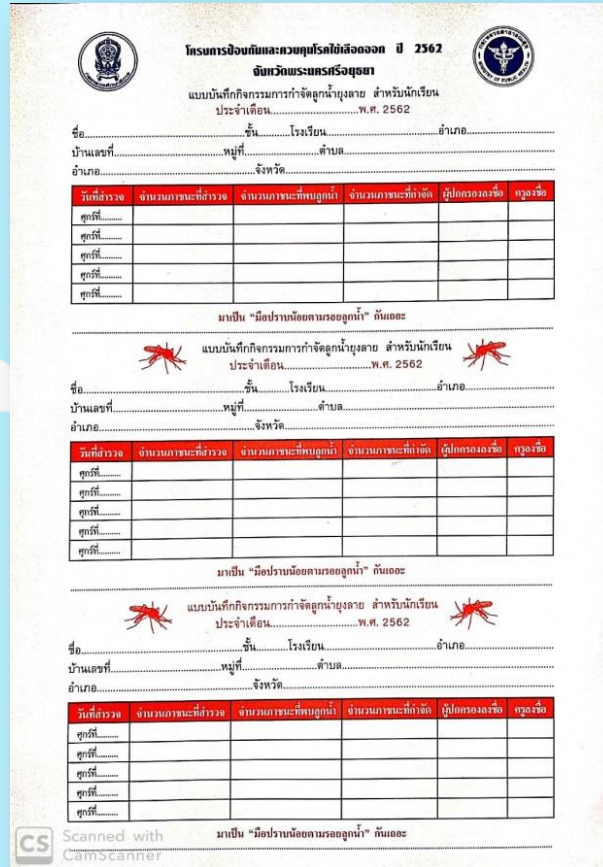 โครงการป้องกันและควบคุมโรคไข้เลือดออก ปี 2562
จังหวัดพระนครศรีอยุธยา
แบบบันทึกกิจกรรมการกำจัดลูกน้ำยุงลาย สำหรับนักเรียน
ประจำเดือน..............................พ.ศ. 2562
ชื่อ..............................ชั้น..........โรงเรียน..............................อำเภอ....................
บ้านเลขที่..............................หมู่ที่....................ตำบล..............................
อำเภอ..............................จังหวัด..............................
วันที่สำรวจ จำนวนภาชนะที่สำรวจ จำนวนภาชนะที่พบลูกน้ำ จำนวนภาชนะที่กำจัด ผู้ปกครองลงชื่อ ครูลงชื่อ
ศุกร์ที่.........
ศุกร์ที่.........
ศุกร์ที่.........
ศุกร์ที่.........
ศุกร์ที่.........
มาเป็น “มือปราบน้อยตามรอยลูกน้ำ” กันเถอะ
แบบบันทึกกิจกรรมการกำจัดลูกน้ำยุงลาย สำหรับนักเรียน
ประจำเดือน..............................พ.ศ. 2562
ชื่อ..............................ชั้น..........โรงเรียน..............................อำเภอ....................
บ้านเลขที่..............................หมู่ที่....................ตำบล..............................
อำเภอ..............................จังหวัด..............................
วันที่สำรวจ จำนวนภาชนะที่สำรวจ จำนวนภาชนะที่พบลูกน้ำ จำนวนภาชนะที่กำจัด ผู้ปกครองลงชื่อ ครูลงชื่อ
ศุกร์ที่.........
ศุกร์ที่.........
ศุกร์ที่.........
ศุกร์ที่.........
ศุกร์ที่.........
มาเป็น “มือปราบน้อยตามรอยลูกน้ำ” กันเถอะ
แบบบันทึกกิจกรรมการกำจัดลูกน้ำยุงลาย สำหรับนักเรียน
ประจำเดือน..............................พ.ศ. 2562
ชื่อ..............................ชั้น..........โรงเรียน..............................อำเภอ....................
บ้านเลขที่..............................หมู่ที่....................ตำบล..............................
อำเภอ..............................จังหวัด..............................
วันที่สำรวจ จำนวนภาชนะที่สำรวจ จำนวนภาชนะที่พบลูกน้ำ จำนวนภาชนะที่กำจัด ผู้ปกครองลงชื่อ ครูลงชื่อ
ศุกร์ที่.........
ศุกร์ที่.........
ศุกร์ที่.........
ศุกร์ที่.........
ศุกร์ที่.........
มาเป็น “มือปราบน้อยตามรอยลูกน้ำ” กันเถอะ
CS Scanned with
CamScanner